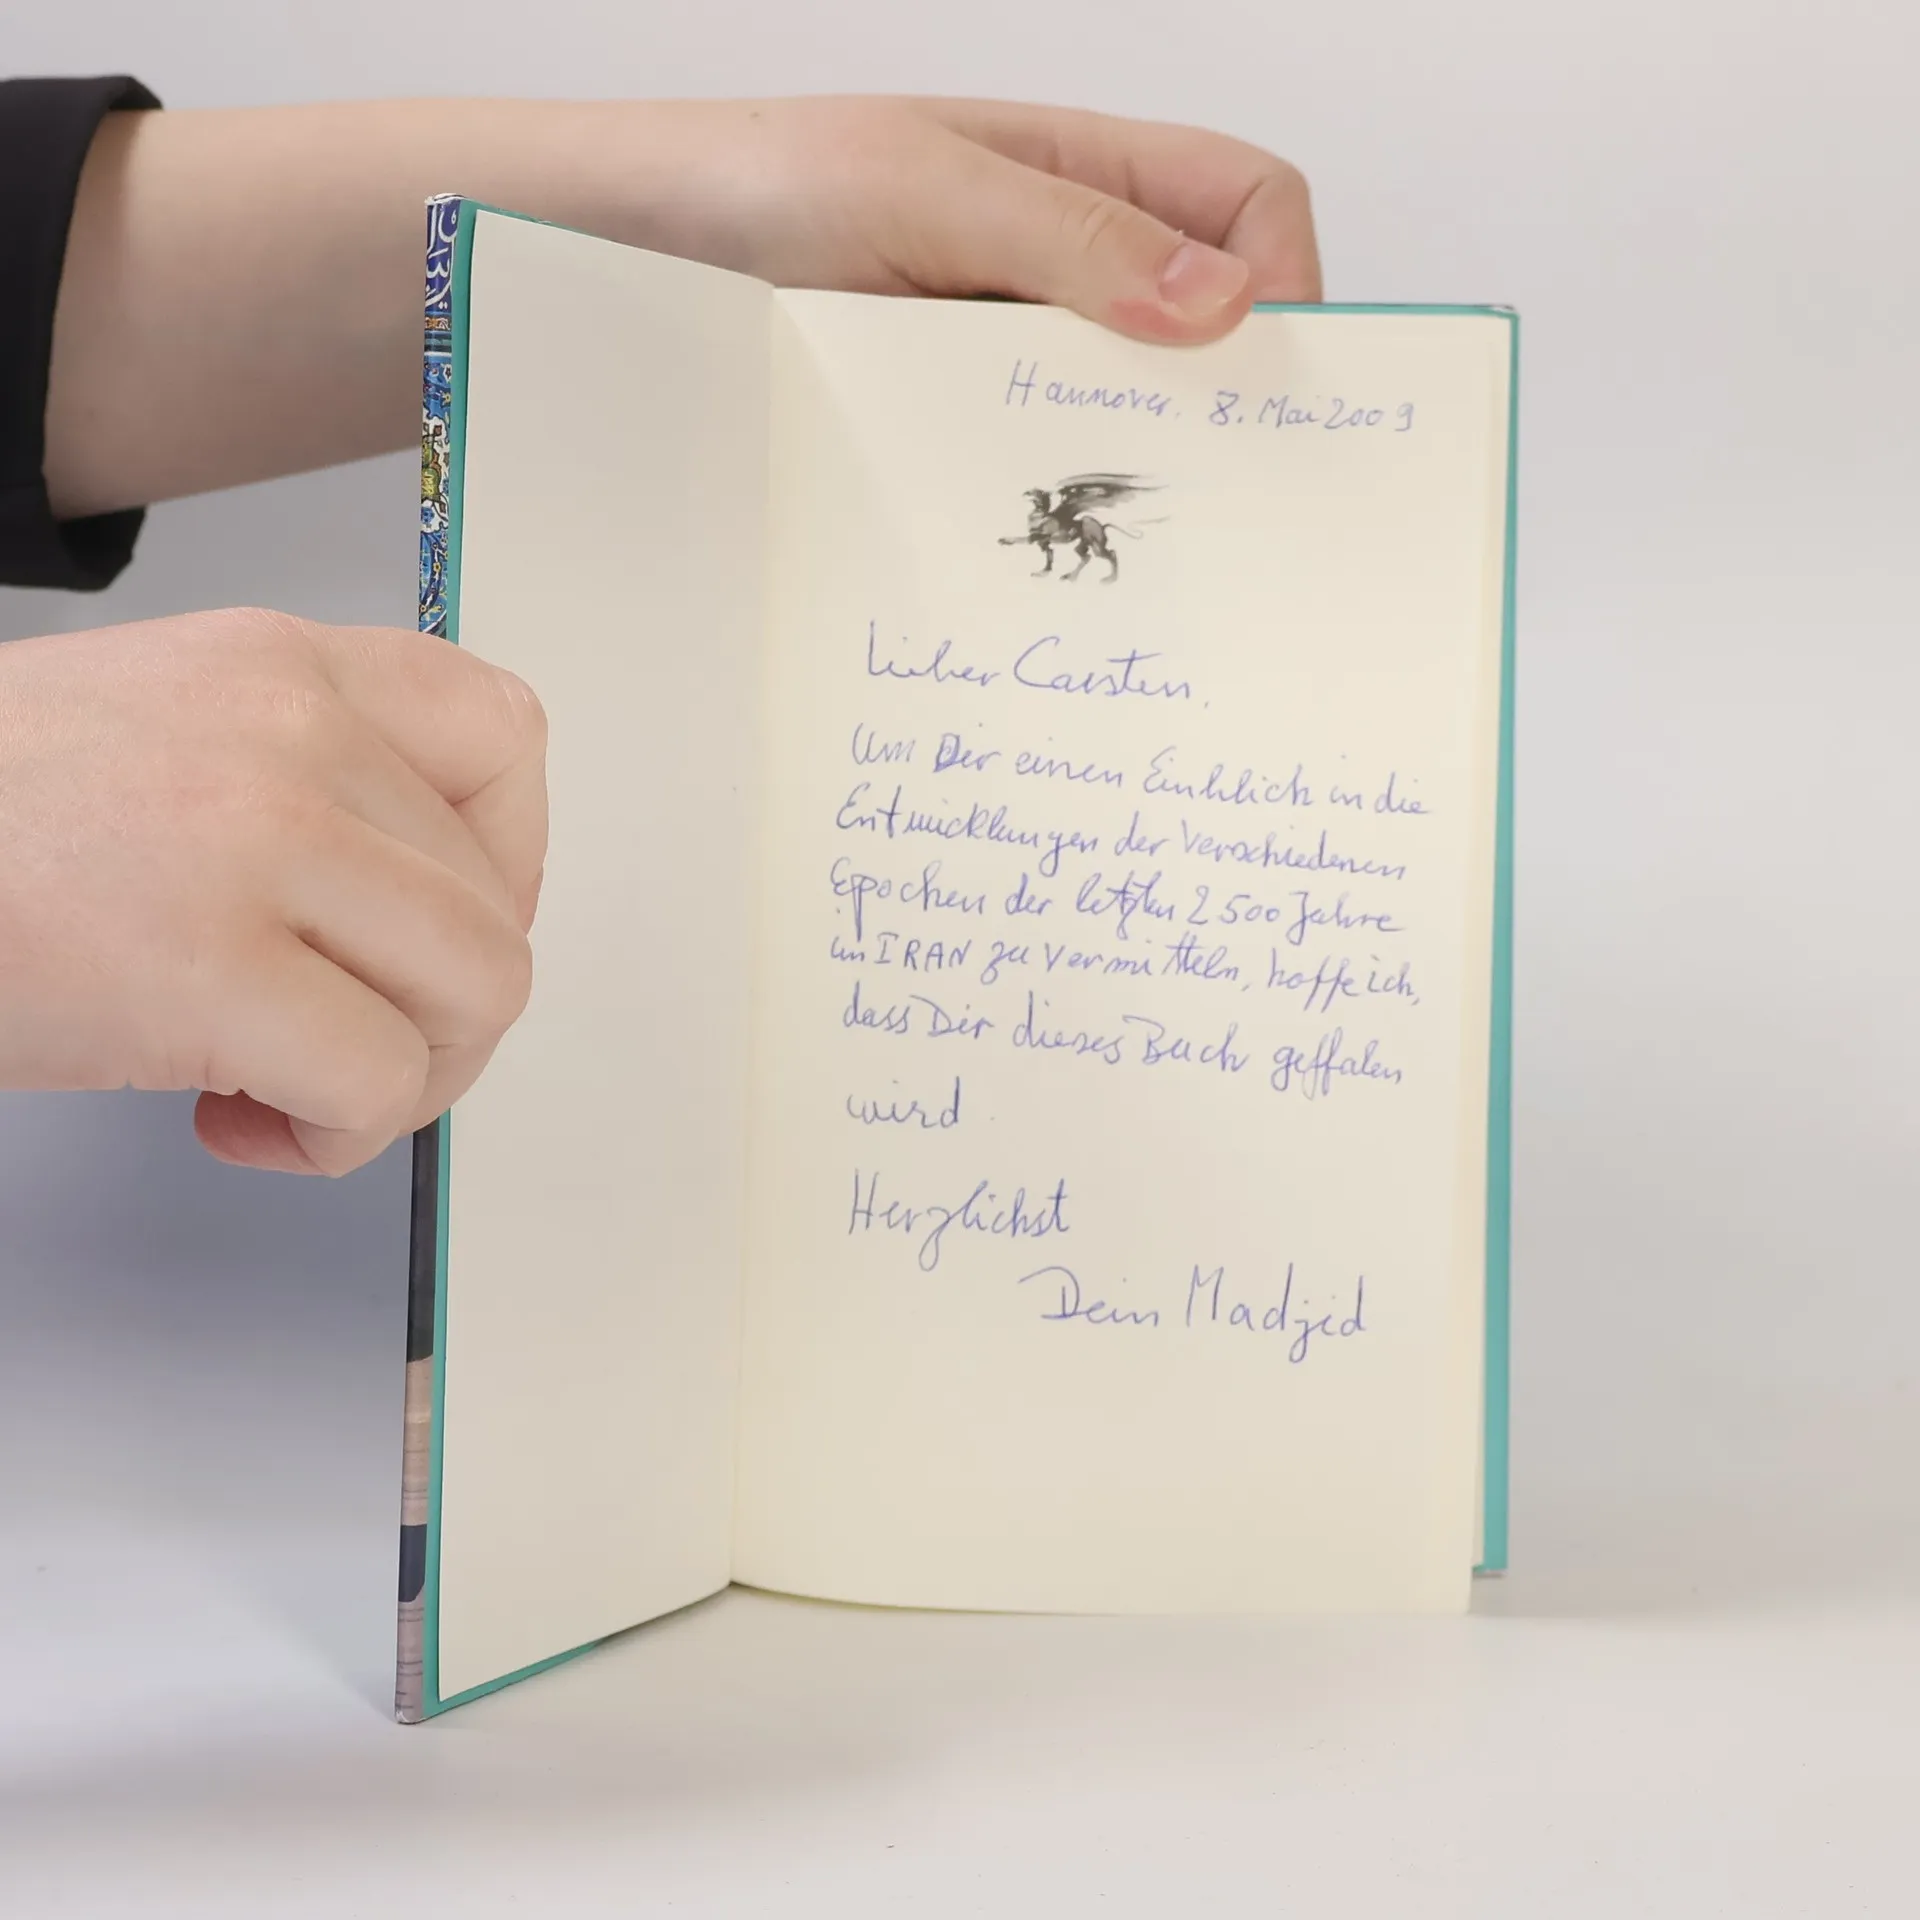 Hannover, 8. Mai 2009
Lieber Carsten,
Um Dir einen Einblick in die
Entwicklungen der verschiedenen
Epochen der letzten 2500 Jahre
im IRAN zu vermitteln, hoffe ich,
dass Dir dieses Buch geffalen
wird.
Herzlichst
Dein Madjid